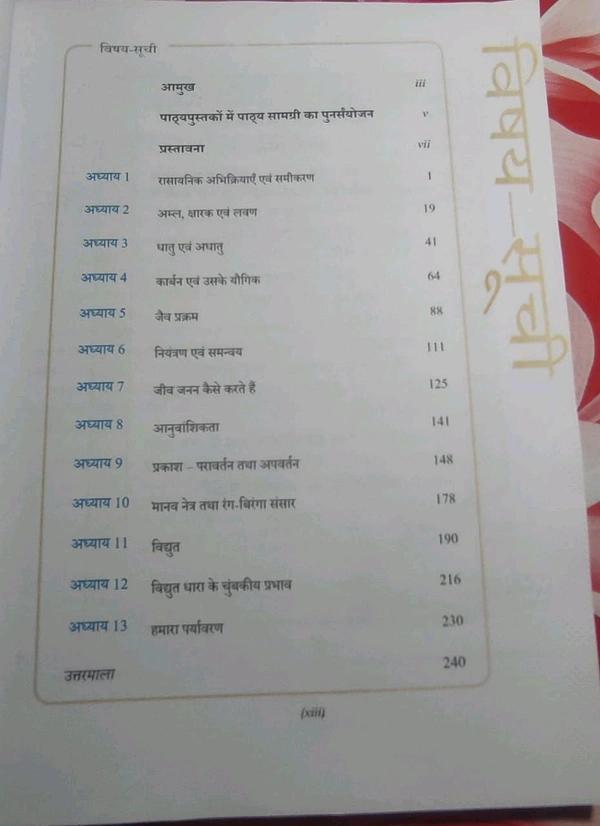 विषय-सूची
आमुख iii
पाठ्यपुस्तकों में पाठ्य सामग्री का पुनर्संयोजन v
प्रस्तावना vii
अध्याय 1 रासायनिक अभिक्रियाएँ एवं समीकरण 1
अध्याय 2 अम्ल, क्षारक एवं लवण 19
अध्याय 3 धातु एवं अधातु 41
अध्याय 4 कार्बन एवं उसके यौगिक 64
अध्याय 5 जैव प्रक्रम 88
अध्याय 6 नियंत्रण एवं समन्वय 111
अध्याय 7 जीव जनन कैसे करते हैं 125
अध्याय 8 आनुवंशिकता 141
अध्याय 9 प्रकाश – परावर्तन तथा अपवर्तन 148
अध्याय 10 मानव नेत्र तथा रंग-बिरंगा संसार 178
अध्याय 11 विद्युत 190
अध्याय 12 विद्युत धारा के चुंबकीय प्रभाव 216
अध्याय 13 हमारा पर्यावरण 230
उत्तरमाला 240
(xiii)
विषय–सूची